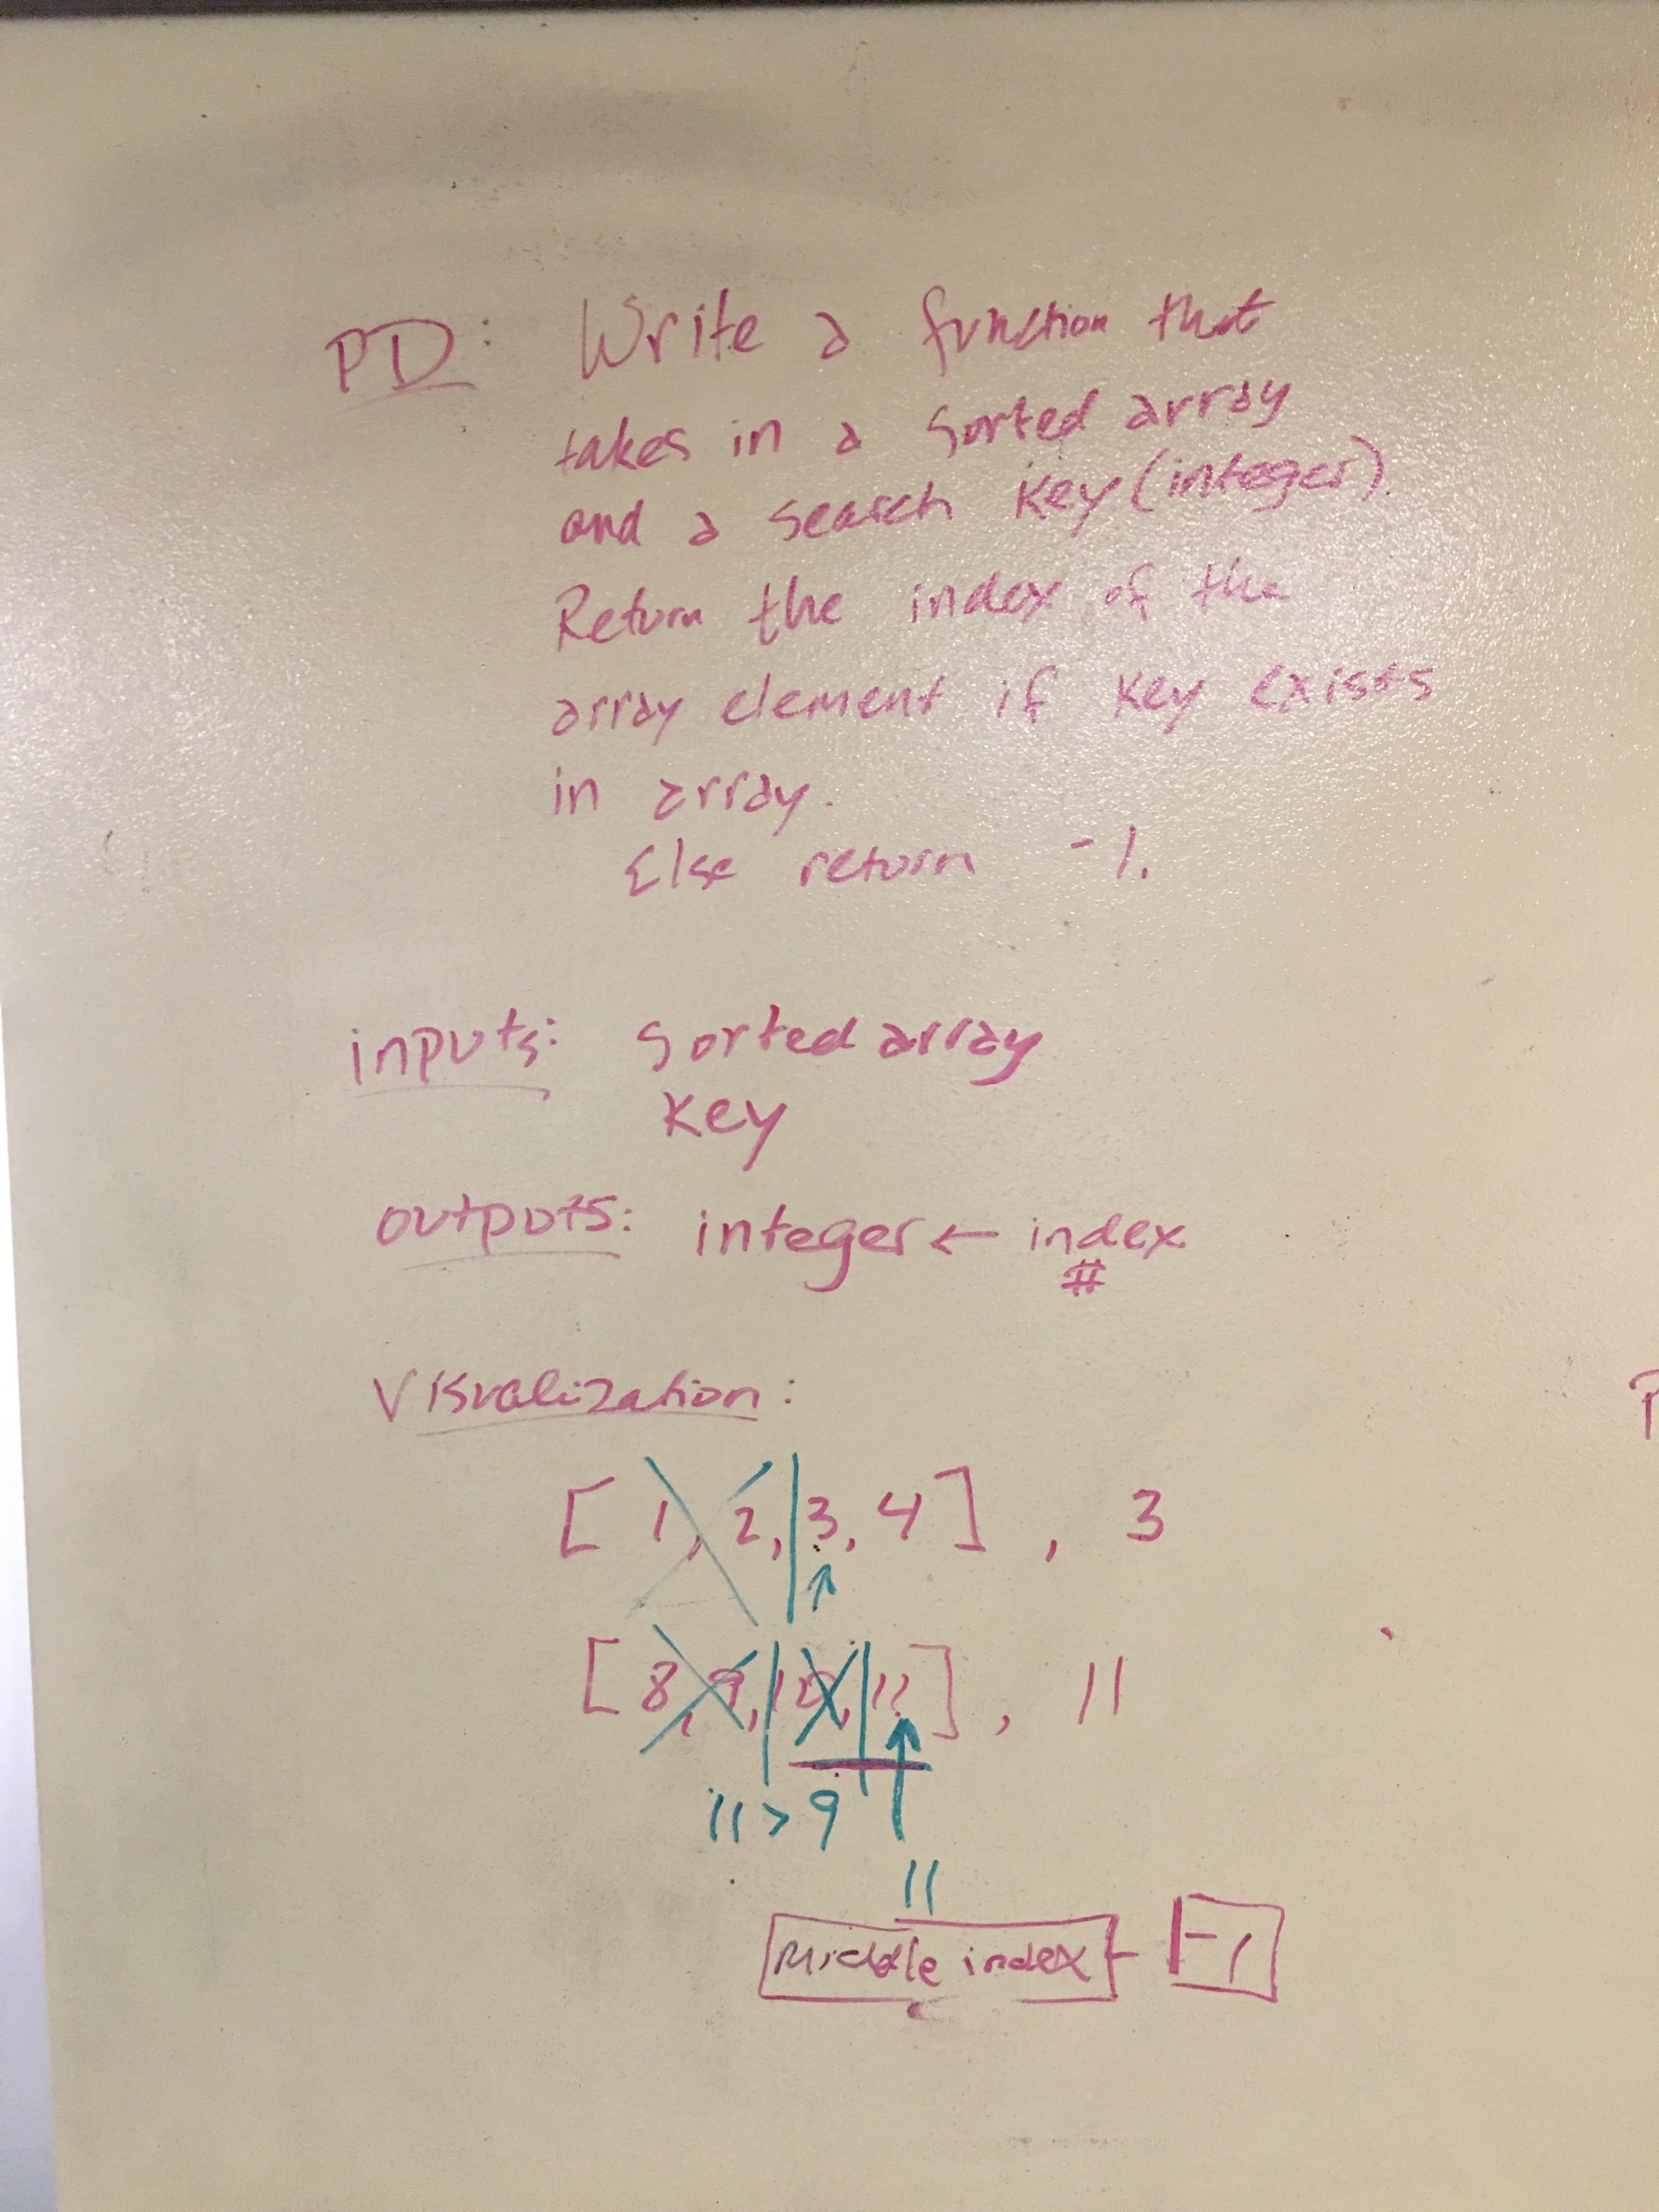 PD: Write a function that
takes in a sorted array
and a search key (integer).
Return the index of the
array element if key exists
in array.
Else return -1.
inputs: Sorted array
key
outputs: integer ← index
#
Visualization:
[ 1, 2, 3, 4 ] , 3
↑
[ 8, 9, 10, 11 ] , 11
11 > 9
11
Middle index